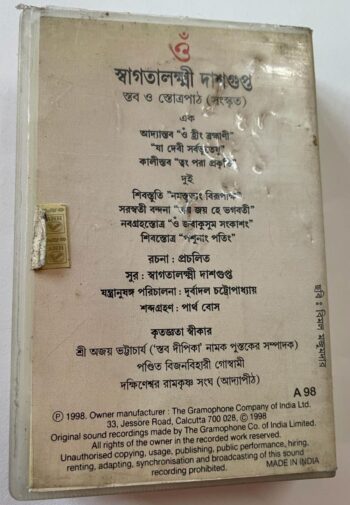 ওঁ
স্বাগতালক্ষ্মী দাশগুপ্ত
স্তব ও স্তোত্রপাঠ (সংস্কৃত)
এক
আদ্যাস্তব “ওঁ হ্রীং ব্রহ্মাণী”
“যা দেবী সর্বভূতেষু”
কালীস্তব “ত্বং পরা প্রকৃতি”
দুই
শিবস্তুতি “নমস্তুভ্যং বিরূপাক্ষ”
সরস্বতী বন্দনা “জয় জয় হে ভগবতী”
নবগ্রহস্তোত্র “ওঁ জবাকুসুম সংকাশং”
শিবস্তোত্র “পশুনাং পতিং”
রচনা : প্রচলিত
সুর : স্বাগতালক্ষ্মী দাশগুপ্ত
যন্ত্রানুষঙ্গ পরিচালনা : দূর্বাদল চট্টোপাধ্যায়
শব্দগ্রহণ : পার্থ বোস
কৃতজ্ঞতা স্বীকার
শ্রী অজয় ভট্টাচার্য (‘স্তব দীপিকা’ নামক পুস্তকের সম্পাদক)
পণ্ডিত বিজনবিহারী গোস্বামী
দক্ষিণেশ্বর রামকৃষ্ণ সংঘ (আদ্যাপীঠ)
ছবি : বিমল মজুমদার
A 98
Ⓟ 1998. Owner manufacturer : The Gramophone Company of India Ltd.
33, Jessore Road, Calcutta 700 028, © 1998
Original sound recordings made by The Gramophone Co. of India Limited.
All rights of the owner in the recorded work reserved.
Unauthorised copying, usage, publishing, public performance, hiring,
renting, adapting, synchronisation and broadcasting of this sound
recording prohibited.
MADE IN INDIA